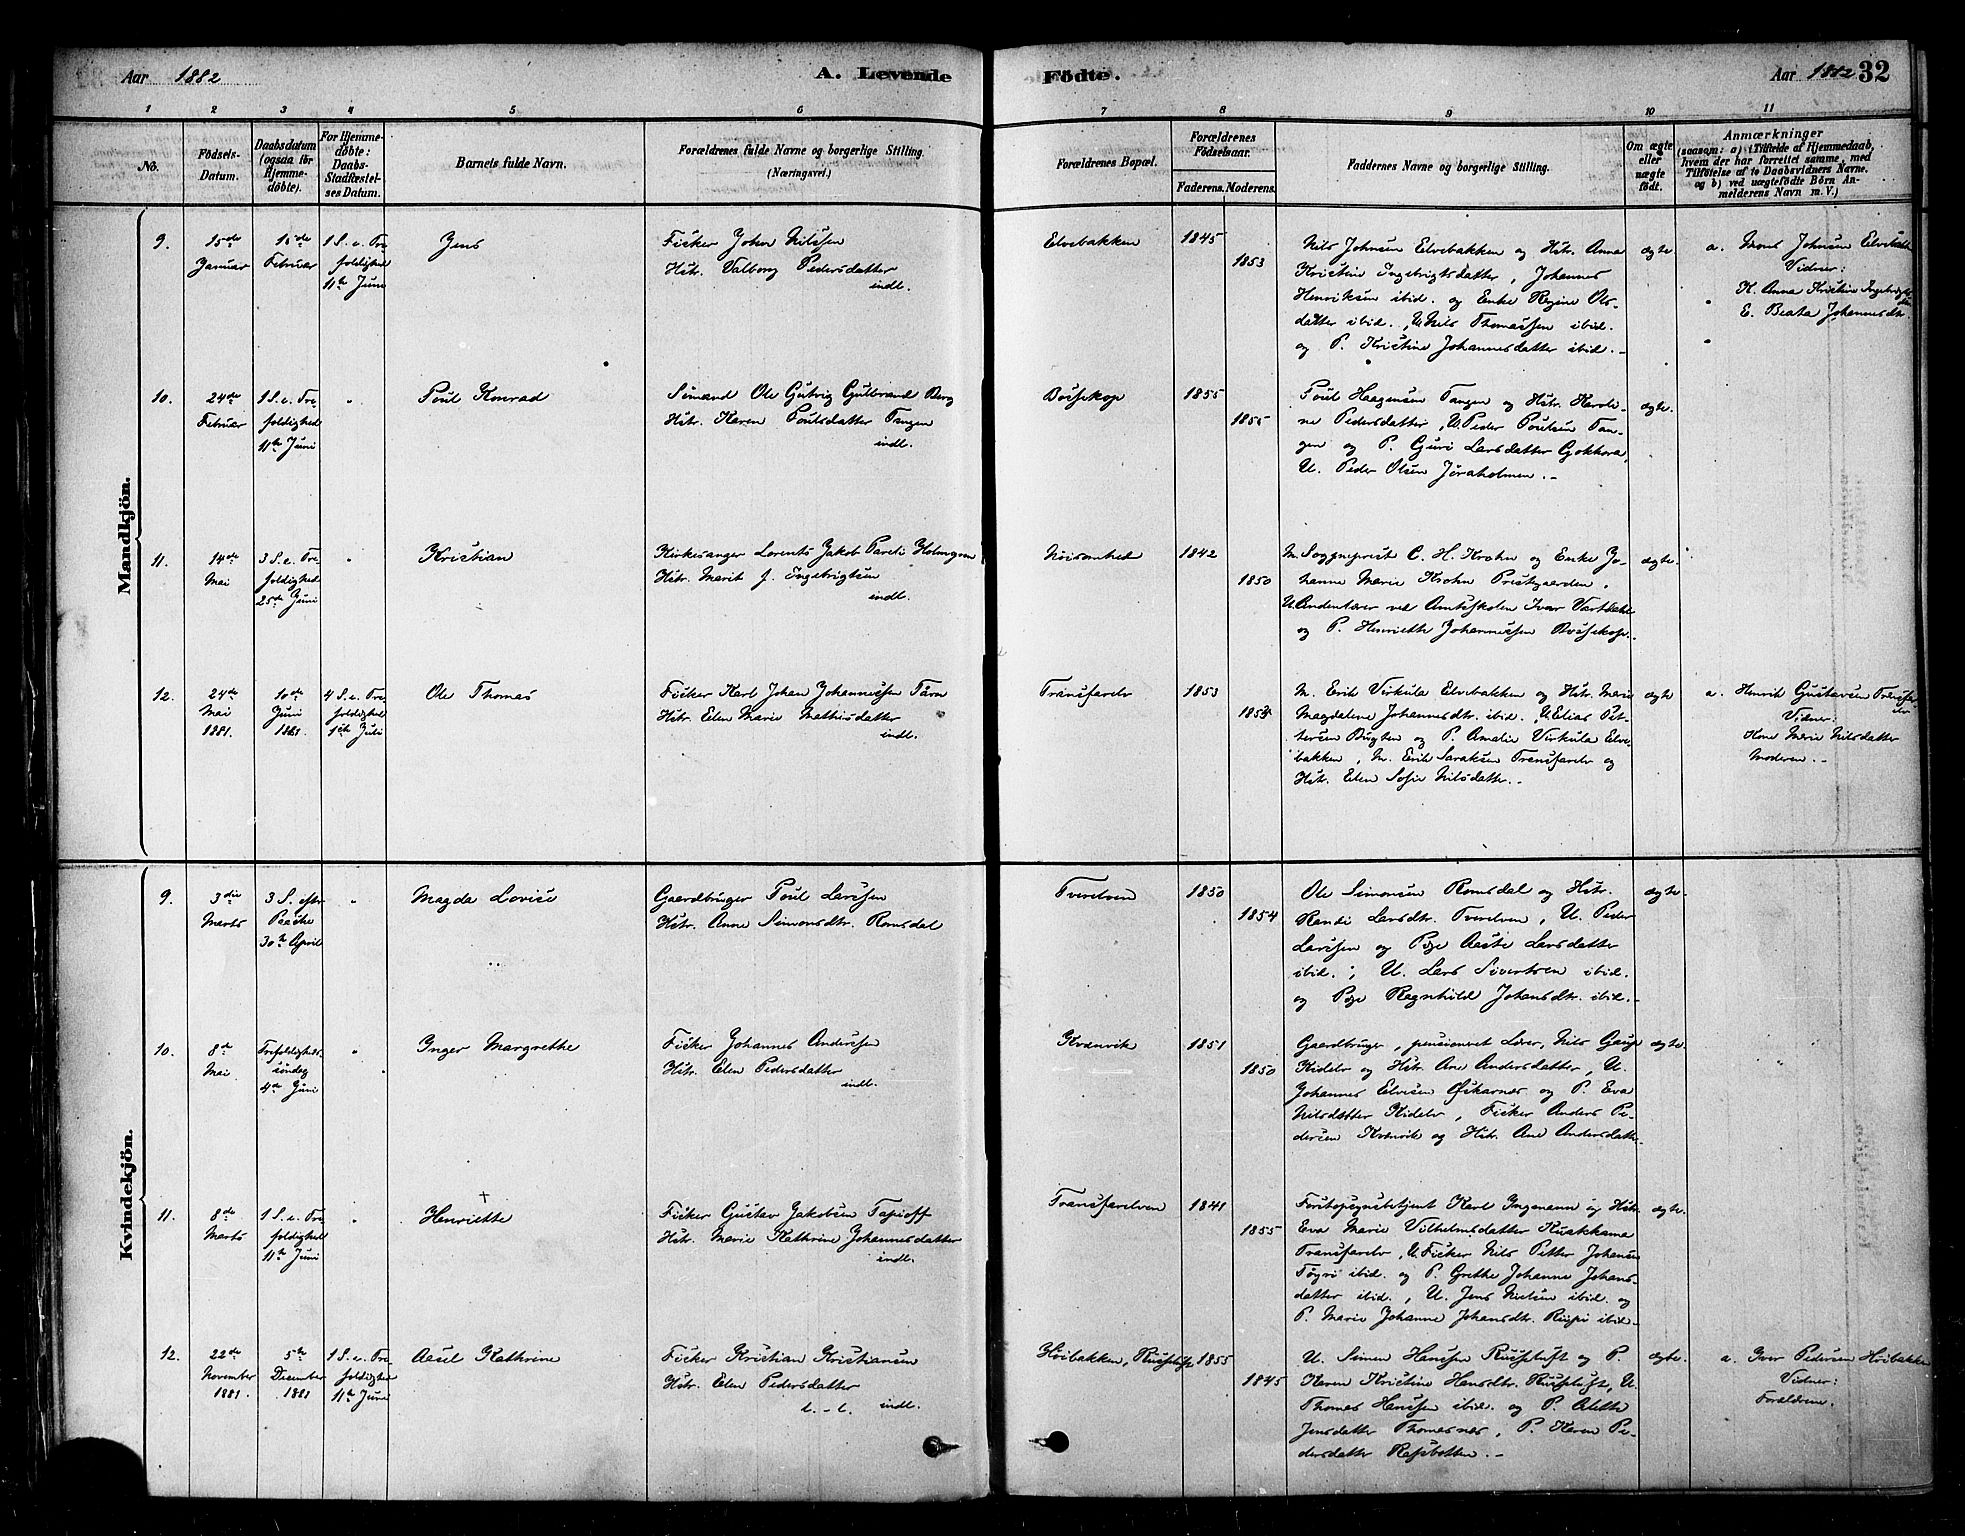 Aar 1882
A. Levende
Födte.
Aar 1882
32
1 2 3 4 5 6
7 8 9 10 11
No.
Födsels-
Datum.
Daabsdatum
(ogsaa för
Hjemme-
döbte).
For Hjemme-
döbte:
Daabs-
Stadfæstel-
ses Datum.
Barnets fulde Navn.
Forældrenes fulde Navne og borgerlige Stilling.
(Næringsvei.)
Forældrenes Bopæl.
Forældrenes
Födselsaar.
Faderens. Moderens.
Faddernes Navne og borgerlige Stilling.
Om ægte
eller
uægte
födt.
Anmærkninger
(saasom: a) i Tilfælde af Hjemmedaab,
hvem der har forrettet samme, med
Tilföielse af to Daabsvidners Navne.
og b) ved uægtefödte Börn An-
melderens Navn m. V.)
Mandkjön.
9.
15de
Januar
15de
Februar
1 S. e. Tre
foldighed
11te Juni
Jens
Fisker John Nilssen
Hstr. Valborg Pedersdatter
indl.
Elvebakken
1845
1853
Nils Johnsen Elvebakken og Hstr. Anna
Kristine Ingebrigtsdatter, Johannes
Henriksen ibid. og Enke Regine Ols-
datter ibid., U. Nils Thomassen ibid.
og P. Kristine Johannesdatter ibid.
ægte
a. Mons Johnsen Elvebakk
Vidner:
H. Anna Kristine Ingebrigts
E. Beata Johannesdtr.
10.
24de
Februar
1 S. e. Tre-
foldighed
11te Juni
"
Poul Konrad
Seminarist Ole Gutvig Gulbrand Berg
Hstr. Karen Poulsdatter Tangen
indl.
Bossekop
1855
1855
Poul Haagensen Tangen og Hstr. Karoli-
ne Pedersdatter, U. Peder Poulsen Tan-
gen og P. Guri Larsdatter Gokhora,
U. Peder Olsen Jøraholmen.
ægte.
11.
14de
Mai
3 S. e. Tre
foldighed
25de Juni
"
Kristian
Kirkesanger Lorents Jakob Pareli Holmgren
Hstr. Marit f. Ingebrigtsen
indl.
Nøisomhed
1842
1850
M. Sogneprest C. H. Krohn og Enke Jo-
hanne Marie Krohn Prestgaarden,
U. Andenlærer ved Amtsskolen Ivar Vartdahl
og P. Henriette Johannessen Bossekop.
ægte.
12.
24de
Mai
1881.
10de
Juni
1881.
4 S. e. Tre-
foldighed
1ste Juli
Ole Thomas
Fisker Karl Johan Johannessen Tarn
Hstr. Elen Marie Mathisdatter
indl.
Transfarelv
1853
M. Erik Virkula Elvebakken og Hstr. Marie
Magdalene Johannesdtr. ibid., U. Elias Pet-
tersen Bugten og P. Amalie Virkula Elve-
bakken, M. Erik Saraksen Transfarelv og
Hstr. Elen Sofie Nilsdatter.
ægte
a. Henrik Gustavsen Transfar
elv
Vidner:
Kone Marie Nilsdatter
Moderen.
Kvindekjön.
9.
3die
Marts
3 S. efter
Paaske
30te April
"
Magda Lovise
Gaardbruger Poul Larssen
Hstr. Anne Simonsdtr. Romsdal
Tverelven
1850
1854
Ole Simonsen Romsdal og Hstr.
Randi Larsdtr. Tverelven, U. Peder
Larssen og Pige Aaste Larsdatter
ibid., U. Lars Sivertsen ibid.
og Pige Ragnhild Johansdtr. ibid.
ægte.
10.
8de
Mai
Trefoldigheds
søndag
4de Juni
"
Inger Margrethe
Fisker Johannes Anderssen
Hstr. Elen Pedersdatter
indl.
Kvænvik
1851
1850
Gaardbruger, pensioneret Lærer, Nils Gaup
Kidelv og Hstr. Ane Andersdatter, U.
Johannes Elvisen Øskarnes og P. Eva
Nilsdatter Kidelv, Fisker Anders Pe-
dersen Kvænvik og Hstr. Ane Andersdattr
ægte.
11.
8de
Marts
1 S. e. Tre-
foldighed
11te Juni
"
†
Henriette
Fisker Gustav Jakobsen Tapioff
Hstr. Marie Kathrine Johannesdatter
indl.
Transfarelven
1841
1855
Forstopsynsbetjent Karl Ingemann og Hstr.
Eva Marie Vilhelmsdatter Kuakkama
Transfarelv, U. Fisker Nils Petter Johansen
Tøgri ibid. og P. Grethe Johanne Johans-
datter ibid., U. Jens Nielsen ibid. og
P. Marie Johanne Johansdtr. ibid.
ægte.
12.
22de
November
1881.
5te
December
1881
1 S. e. Tre-
foldighed
11te Juni
Aasel Kathrine
Fisker Kristian Kristiansen
Hstr. Elen Pedersdatter
l. - l. indl.
Høibakken, Russeluft
1855
1845
U. Simen Hanssen Russeluft og P.
Karen Kristine Hansdtr. Russeluft, U.
Thomas Hanssen ibid. og P. Alette
Jensdatter Thomasnes, P. Karen Pe-
dersdatter Rafsbotten.
ægte.
a. Iver Pedersen Høibakken
Vidner:
Forældrene.